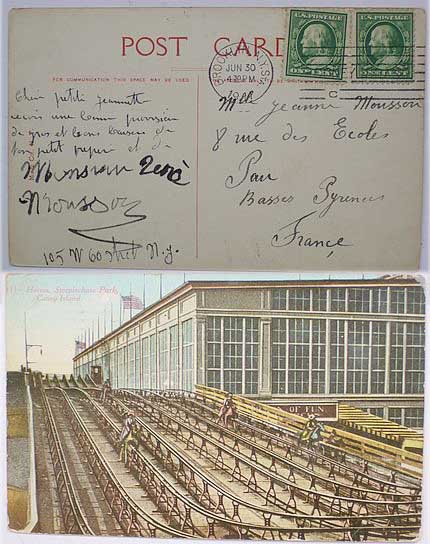 POST CARD
FOR COMMUNICATION THIS SPACE MAY BE USED
U.S. POSTAGE
U.S. POSTAGE
ONE CENT
ONE CENT
JUN 30
Mlle Jeanne Mousson
8 rue des Ecoles
Pau
Basses Pyrenees
France
Chere petite Jeannette
recois une bonne provision
de gros et bons baisers de
ton petit papa et de
Monsieur René
Mousson
105 W 60 street N.Y.
Horses, Steeplechase Park,
Coney Island
OF FUN